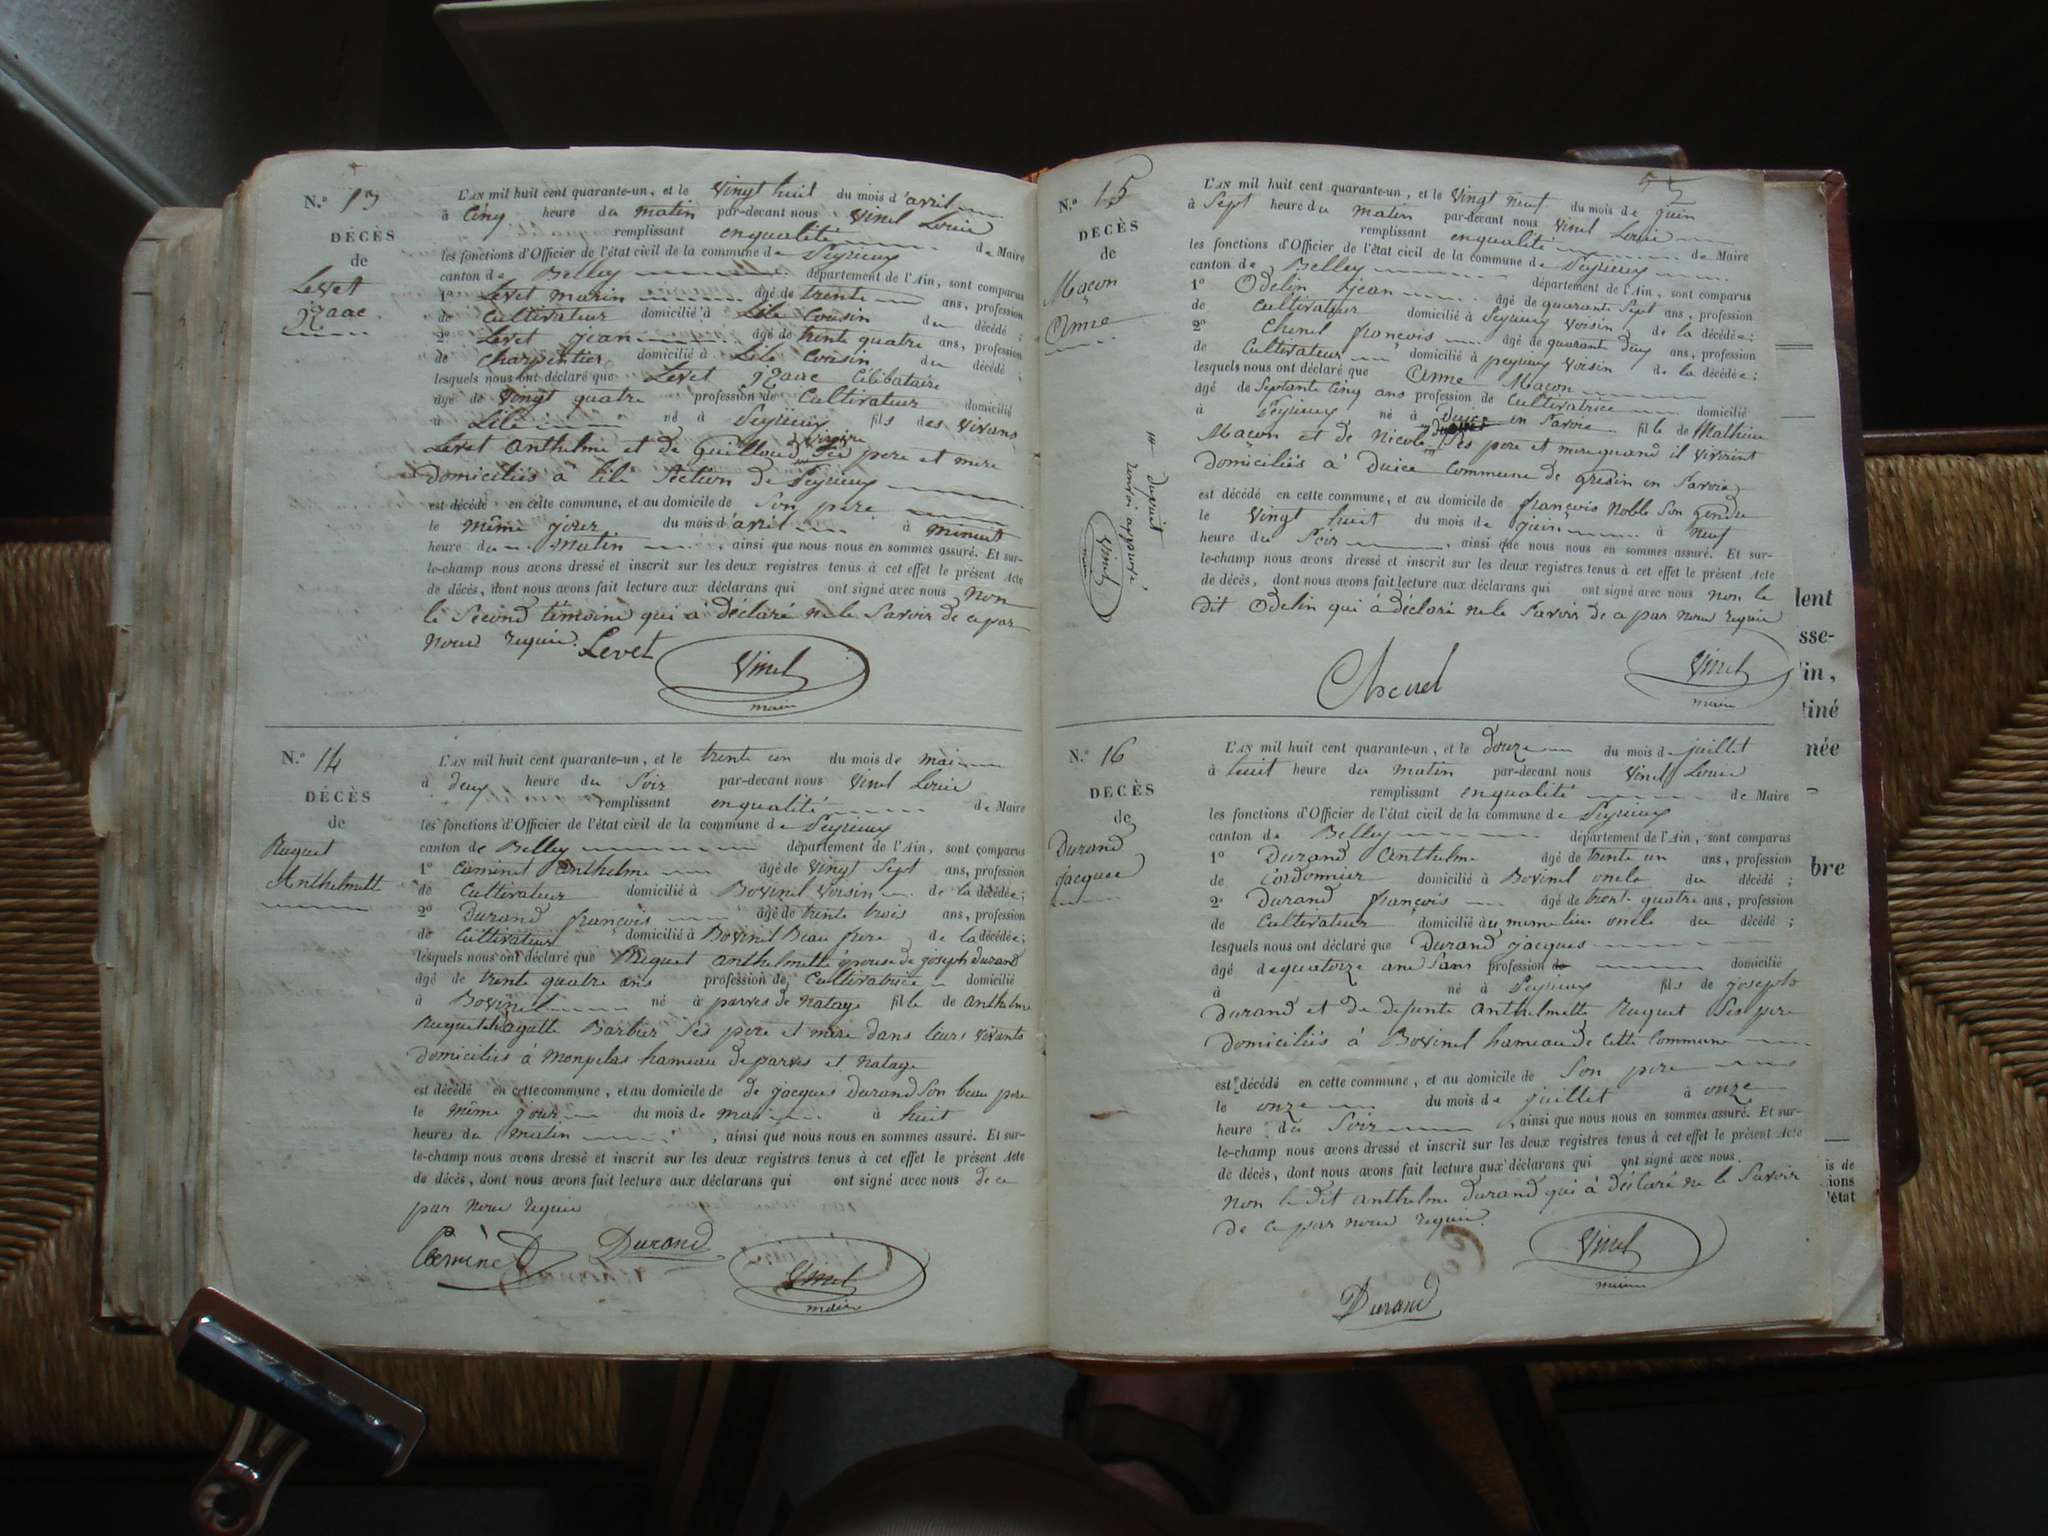 N.º 13
DÉCÈS
de
Levet
L'AN mil huit cent quarante-un, et le vingt huit du mois d'avril
à Cinq heure du matin par-devant nous Vinel Louis
remplissant enqualité de Maire
les fonctions d'Officier de l'état civil de la commune de Peyrieux
canton de Belley département de l'Ain, sont comparus
1º Levet marin âgé de trente ans, profession
de Cultivateur domicilié à Lile Cousin du décédé ;
2º Levet jean âgé de trente quatre ans, profession
de Charpentier domicilié à Lile Cousin du décédé ;
lesquels nous ont déclaré que Levet Célibataire
âgé de vingt quatre profession de Cultivateur domicilié
à Lile né à Peyrieux fils des vivans
Levet anthelme et de Guilloud Ses pere et mere
domiciliés à lile Section de Peyrieux
est décédé en cette commune, et au domicile de Son pere
le même jour du mois d'avril à minuit
heure du matin , ainsi que nous nous en sommes assuré. Et sur-
le-champ nous avons dressé et inscrit sur les deux registres tenus à cet effet le présent Acte
de décès, dont nous avons fait lecture aux déclarans qui ont signé avec nous non
le Second témoins qui à déclaré ne le Savoir de ce par
nous requis. Levet
Vinel
maire
N.º 14
DÉCÈS
de
Ruguet
Anthelmette
L'AN mil huit cent quarante-un, et le trente un du mois de mai
à deux heure du Soir par-devant nous Vinel Louis
remplissant enqualité de Maire
les fonctions d'Officier de l'état civil de la commune de Peyrieux
canton de Belley département de l'Ain, sont comparus
1º Caminet Anthelme âgé de vingt Sept ans, profession
de Cultivateur domicilié à Bovinel Voisin de la décédée ;
2º Durand françois âgé de trente trois ans, profession
de Cultivateur domicilié à Bovinel Beau frere de la décédée ;
lesquels nous ont déclaré que Ruguet anthelmette épouse de joseph Durand
âgé de trente quatre ans profession de Cultivatrice domicilié
à Bovinel né à parves de Natage fille de Anthelme
Ruguet Barbier Ses pere et mere dans leurs vivants
domiciliés à monpelas hameau de parves et Natage
est décédé en cette commune, et au domicile de de jacques Durand Son beau pere
le même jour du mois de mai à huit
heures du matin , ainsi que nous nous en sommes assuré. Et sur-
le-champ nous avons dressé et inscrit sur les deux registres tenus à cet effet le présent Acte
de décès, dont nous avons fait lecture aux déclarans qui ont signé avec nous de ce
par nous requis
Caminet Durand
Vinel
maire
N.º 15
DÉCÈS
de
Maçon
Anne
renvoi approuvé
Vinel
maire
L'AN mil huit cent quarante-un, et le vingt neuf du mois de juin
à Sept heure du matin par-devant nous Vinel Louis
remplissant enqualité de Maire
les fonctions d'Officier de l'état civil de la commune de Peyrieux
canton de Belley département de l'Ain, sont comparus
1º Odelin jean âgé de quarante Sept ans, profession
de Cultivateur domicilié à Peyrieux Voisin de la décédée ;
2º Chenel françois âgé de quarante deux ans, profession
de Cultivateur domicilié à peyrieux Voisin de la décédée ;
lesquels nous ont déclaré que Anne Maçon
âgé de Septante Cinq ans profession de Cultivatrice domicilié
à Peyrieux né à en Savoie fille de Mathieu
Maçon et de Nicole Ses pere et mere quand il vivoint
domiciliés à Duice Commune de gresin en Savoie
est décédé en cette commune, et au domicile de françois Noble Son gendre
le vingt huit du mois de juin à neuf
heure du Soir , ainsi que nous nous en sommes assuré. Et sur-
le-champ nous avons dressé et inscrit sur les deux registres tenus à cet effet le présent Acte
de décès, dont nous avons fait lecture aux déclarans qui ont signé avec nous non le
dit Odelin qui à déclaré ne le Savoir de ce par nous requis
Chenel
Vinel
maire
N.º 16
DÉCÈS
de
Durand
Jacques
L'AN mil huit cent quarante-un, et le douze du mois de juillet
à huit heure du matin par-devant nous Vinel Louis
remplissant enqualité de Maire
les fonctions d'Officier de l'état civil de la commune de Peyrieux
canton de Belley département de l'Ain, sont comparus
1º Durand Anthelme âgé de trente un ans, profession
de Cordonnier domicilié à Bovinel oncle du décédé ;
2º Durand françois âgé de trente quatre ans, profession
de Cultivateur domicilié au meme lieu oncle du décédé ;
lesquels nous ont déclaré que Durand jacques
âgé de quatorze ans Sans profession de domicilié
à né à Peyrieux fils de joseph
Durand et de defunte Anthelmette Ruguet Ses pere
domiciliés à Bovinel hameau de cette Commune
est décédé en cette commune, et au domicile de Son pere
le onze du mois de juillet à onze
heure du Soir , ainsi que nous nous en sommes assuré. Et sur-
le-champ nous avons dressé et inscrit sur les deux registres tenus à cet effet le présent Acte
de décès, dont nous avons fait lecture aux déclarans qui ont signé avec nous.
Non le dit anthelme Durand qui à déclaré ne le Savoir
de ce par nous requis.
Vinel
maire
Durand
lent
sse-
in,
tiné
née
bre
is de
ions
l'état